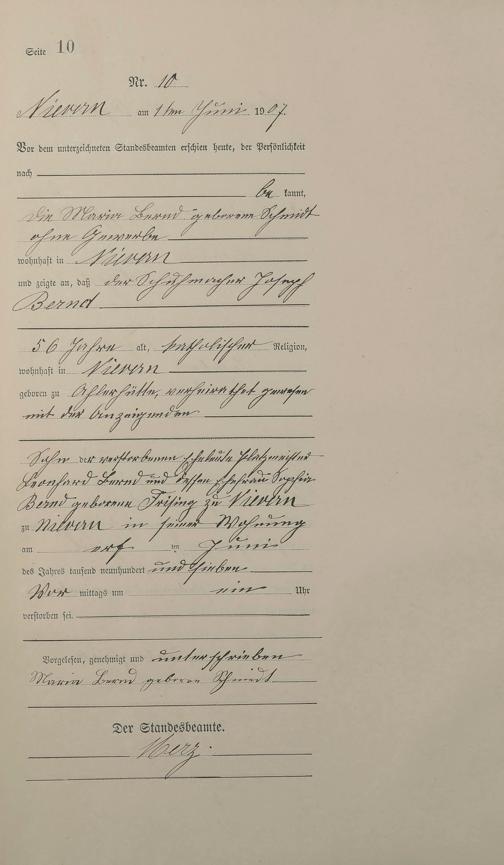 Seite 10
Nr. 10
Nievern am 1ten Juni 1907.
Vor dem unterzeichneten Standesbeamten erschien heute, der Persönlichkeit
nach
be kannt,
die Maria Bernd geborene Schmidt
ohne Gewerbe
wohnhaft in Nievern
und zeigte an, daß der Schuhmacher Joseph
Bernd
56 Jahre alt, katholischer Religion,
wohnhaft in Nievern
geboren zu Ahlerhütte, verheirathet gewesen
mit der Anzeigenden
Sohn der verstorbenen Eheleute Platzmeister
Leonhard Bernd und dessen Ehefrau Sophia
Bernd geborene Trising zu Nievern
zu Nievern in seiner Wohnung
am ten Juni
des Jahres tausend neunhundert und sieben
Vor mittags um ein Uhr
verstorben sei.
Vorgelesen, genehmigt und unterschrieben
Maria Bernd geborene Schmidt
Der Standesbeamte.
Merz.